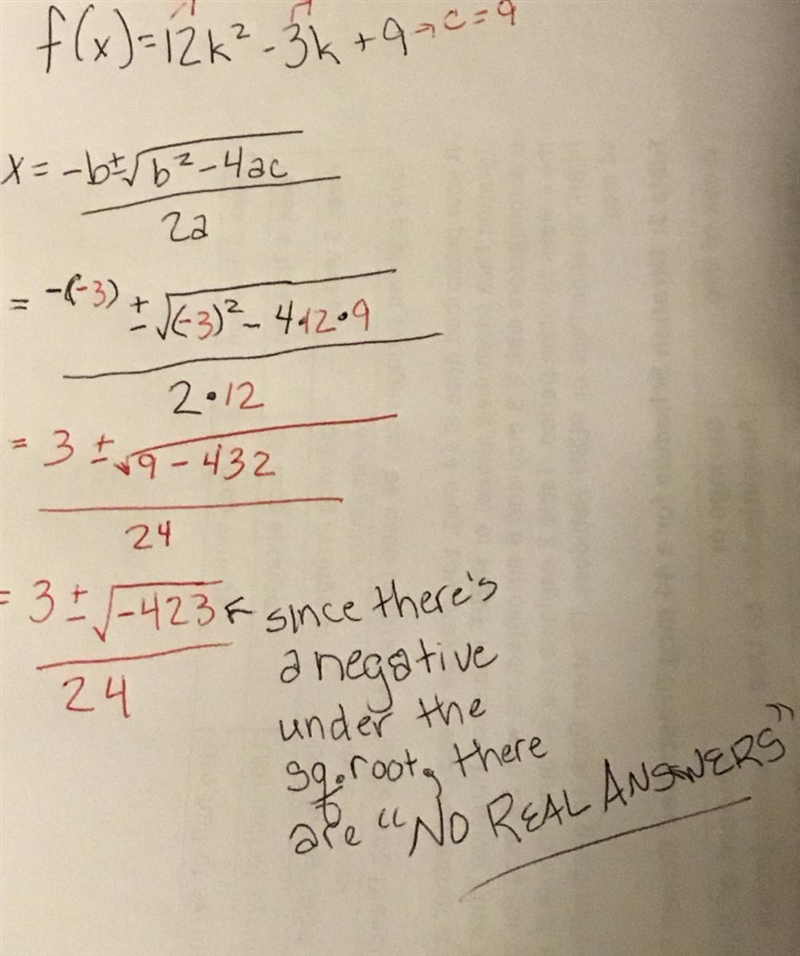 f(x)=12k² - 3k + 9 → c = 9
x = -b±√b²-4ac
2a
= -(-3) ± √(-3)² - 4•12•9
2•12
= 3 ± √9 - 432
24
= 3 ± √-423 ← since there's
24
a negative
under the
sq. root, there
are "NO REAL ANSWERS"